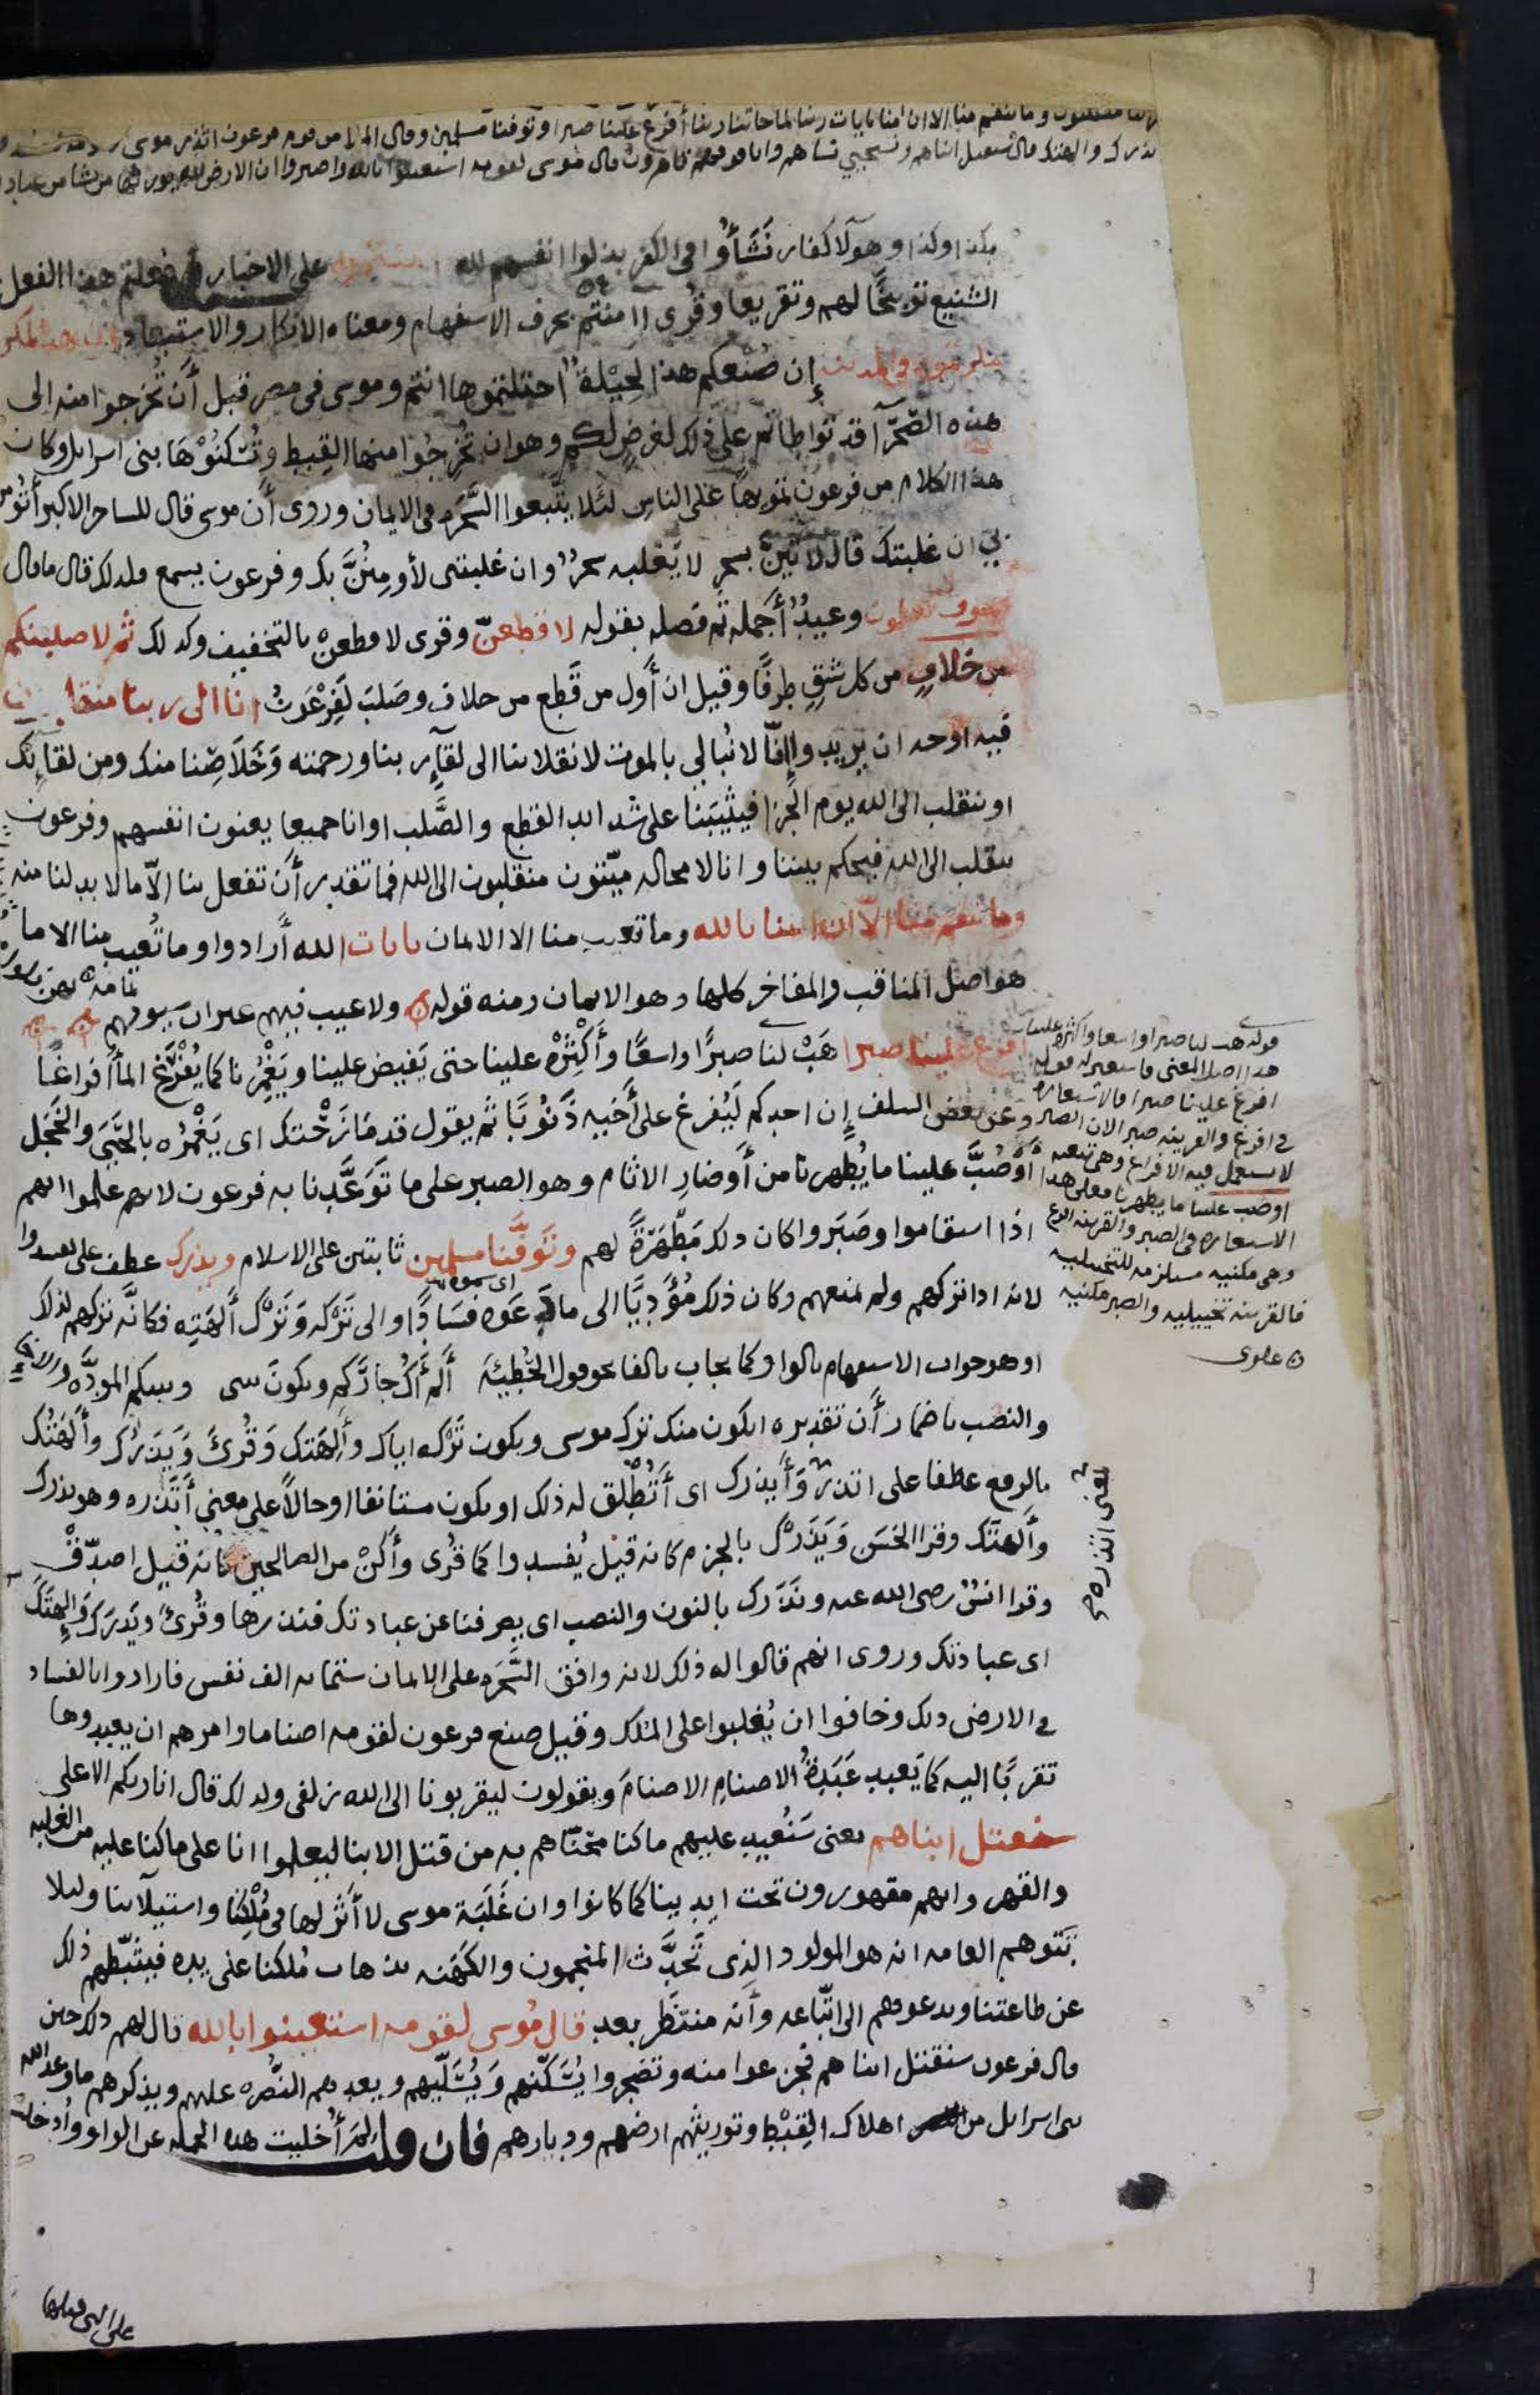 منقلبون وما تنقم منا الا ان امنا بايات ربنا لما جاتنا ربنا أفرغ علينا صبرا وتوفنا مسلمين وقال الملا من قوم فرعون اتذر موسى
يذرك والهتك قال سنقتل ابناهم ونستحيي نساهم وانا فوقهم قاهرون قال موسى لقومه استعينوا بالله واصبروا ان الارض لله يورثها من يشا من عباد
بكذا وكذا وهولآ كفار نَشَأُوا فى الكفر بذلوا انفسهم لله على الاخبار اى فعلتم هذا الفعل
الشنيع توبيخًا لهم وتقريعا وقرى اامنتم بحرف الاستفهام ومعناه الانكار والاستبعاد ان هذا لمكر
مكرتموه فى المدينه إن صُنعكم هذا لحِيْلةٌ احتلتموها انتم وموسى فى مصر قبل أن تخرجوا منه الى
هذه الصحرآ قد تواطاتم على ذلك لغرضٍ لكم وهو ان تُخرِجُوا منها القِبط وتُسْكنُوْهَا بنى اسرايل وكان
هذا الكلام من فرعون تمويهًا على الناس لئلا يتّبعوا السَّحَرَه فى الايمان وروى أن موسى قال للساحر الاكبر أتؤمن
بي ان غلبتك قال لاتينّ بسحرٍ لا يَغلبه سحرٌ وان غلبتنى لأومِنُنَّ بك وفرعون يسمع فلذلك قال ما قال
فسوف تعلمون وعيدٌ أَجمله ثم فصله بقوله لاقطعنّ وقرى لاقطعن بالتخفيف وكذلك ثم لاصلبنكم
من خلافٍ من كل شقٍ طرفًا وقيل ان أول من قَطع من خلاف وصَلبَ لَفِرْعَوْنُ انا الى ربنا منقلبون
فيه اوجه ان يريدوا إنّا لا نُبالي بالموت لانقلابنا الى لقآءِ ربنا ورحمته وَخَلَاصِنا منك ومن لقائك
او ننقلب الى الله يوم الجزا فيثيبنا على شدايد القطع والصَّلب او انا جميعا يعنون انفسهم وفرعون
ننقلب الى الله فيحكم بيننا وانا لا محاله ميّتون منقلبون الى الله فما تقدر أن تفعل بنا الّا ما لا بد لنا منه
وما تنقم منا الّا ان امنا بالله وما تعيب منا الا الايمان بايات الله أرادوا وما تُعيب منا الا ما
هو اصل المناقب والمفاخر كلها وهو الايمان ومنه قوله ولا عيب فيهم غير ان سيوفهم
افرغ علينا صبرا هَبْ لنا صبرًا واسعًا وأَكْثِرْه علينا حتى يَفيض علينا ويَغْمُرنا كما يُفْرَغ المآ افراغًا
وعن بعض السلف إن احدكم ليُفرغ على أخيه ذَنُوبًا ثم يقول قد مَازَحْتك اى يَغْمُره بالحَيَى والخجَل
أو صُبَّ علينا ما يُطهرنا من أوضارِ الاثام وهو الصبر على ما تَوَعَّدنا به فرعون لانهم علموا انهم
اذا استقاموا وصَبَروا كان ذلك مَطْهَرَةً لهم وتَوفَّنا مسلمين ثابتين على الاسلام ويذرك عطف على ليفسدوا
لانه اذا تركهم ولم يمنعهم وكان ذلك مُؤَدِيًّا الى ما دَعَوه فسَادًا والى تَرْكه وَتَرْك ألهَتِه فكانَّه تركهم لذلك
او هو جواب الاستفهام بالواو كما يجاب بالفا نحو قول الحُطيئة ألم أَكُ جارَكم ويكونَ بينى وبينكم المودّه والاخآ
والنصب باضمار أن تقديره ايكون منك ترك موسى ويكون تَرْكه اياك وألِهَتك وَقُرئَ وَيَذَرُك وأَلهَتُك
بالرفع عطفا على اتذر وَأَيذرك اى أَتُطلِق له ذلك او يكون مستانفا او حالًا على معنى أتَذره وهو يذرك
وألهتك وقرا الحَسَن وَيَذَرْك بالجزم كانه قيل يُفسدوا كما قُرى وأكنْ من الصالحين كانه قيل اصدّقْ
وقرا انسٌ رضى الله عنه ونَذَرك بالنون والنصب اى يصرفنا عن عبادتك فنذرها وقُرئ ويَذرك وَإلهتك
اى عبادتك وروى انهم قالوا له ذلك لانه وافق السَّحَرَه على الايمان ستمايه الف نفس فارادوا بالفساد
فى الارض ذلك وخافوا ان يُغلبوا على الملك وقيل صنع فرعون لقومه اصناما وامرهم ان يعبدوها
تقربًا اليه كما يَعبد عَبَدَةُ الاصنامِ الاصنامَ ويقولون ليقربونا الى الله زلفى ولذلك قال انا ربكم الاعلى
سنقتل ابناهم يعنى سَنُعيد عليهم ما كنا محنّاهم به من قتل الابنا ليعلموا انا على ما كنا عليه من الغلبه
والقهر وانهم مقهورون تحت ايدينا كما كانوا وان غَلَبَة موسى لا أثر لها فى مُلْكِنا واستيلآئنا وليلا
يَتوهم العامه انه هو المولود الذى تَحدَّث المنجمون والكَهَنه بذهاب مُلكنا على يده فيثبّطهم ذلك
عن طاعتنا ويدعوهم الى اتّباعه وأنه منتظَر بعد قال مُوسى لقومه استعينوا بالله قال لهم ذلك حين
قال فرعون سنقتل ابناهم فجزعوا منه وتضجروا يُسَكّنهم وَيُسَلّيهم ويعدهم النُّصره عليهم ويذكرهم ما وعد الله
بنى اسرايل من اهلاك القِبْط وتوريثهم ارضهم وديارهم فان قلت لِمَ أُخليت هذه الجمله عن الواو وأُدخلت
قوله هب لنا صبرا واسعا واكثره علينا
هذا اصل المعنى فاستعير له قوله
افرغ علينا صبرا فالاستعاره
فى افرغ والقرينه صبرا لان الصبر
لا يستعمل فيه الافراغ وهى تبعيه
او صب علينا ما يطهرنا فعلى هذا
الاستعاره فى الصبر والقرينه افرغ
وهى مكنيه مستلزمه للتخييليه
فالقرينه تخييليه والصبر مكنيه
علوى
يعنى اتذره